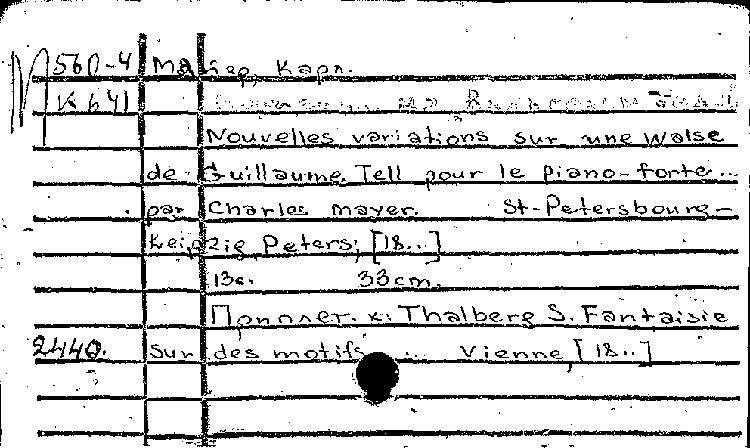 560-4 Майер, Карл.
К 641
Nouvelles variations sur une Walse
de Guillaume Tell pour le piano-forte...
par Charles Mayer. St-Petersbourg-
Leipzig Peters; [18..]
13с. 33cm.
Приплет. к: Thalberg S. Fantaisie
2440. sur des motifs ... Vienne, [18..]